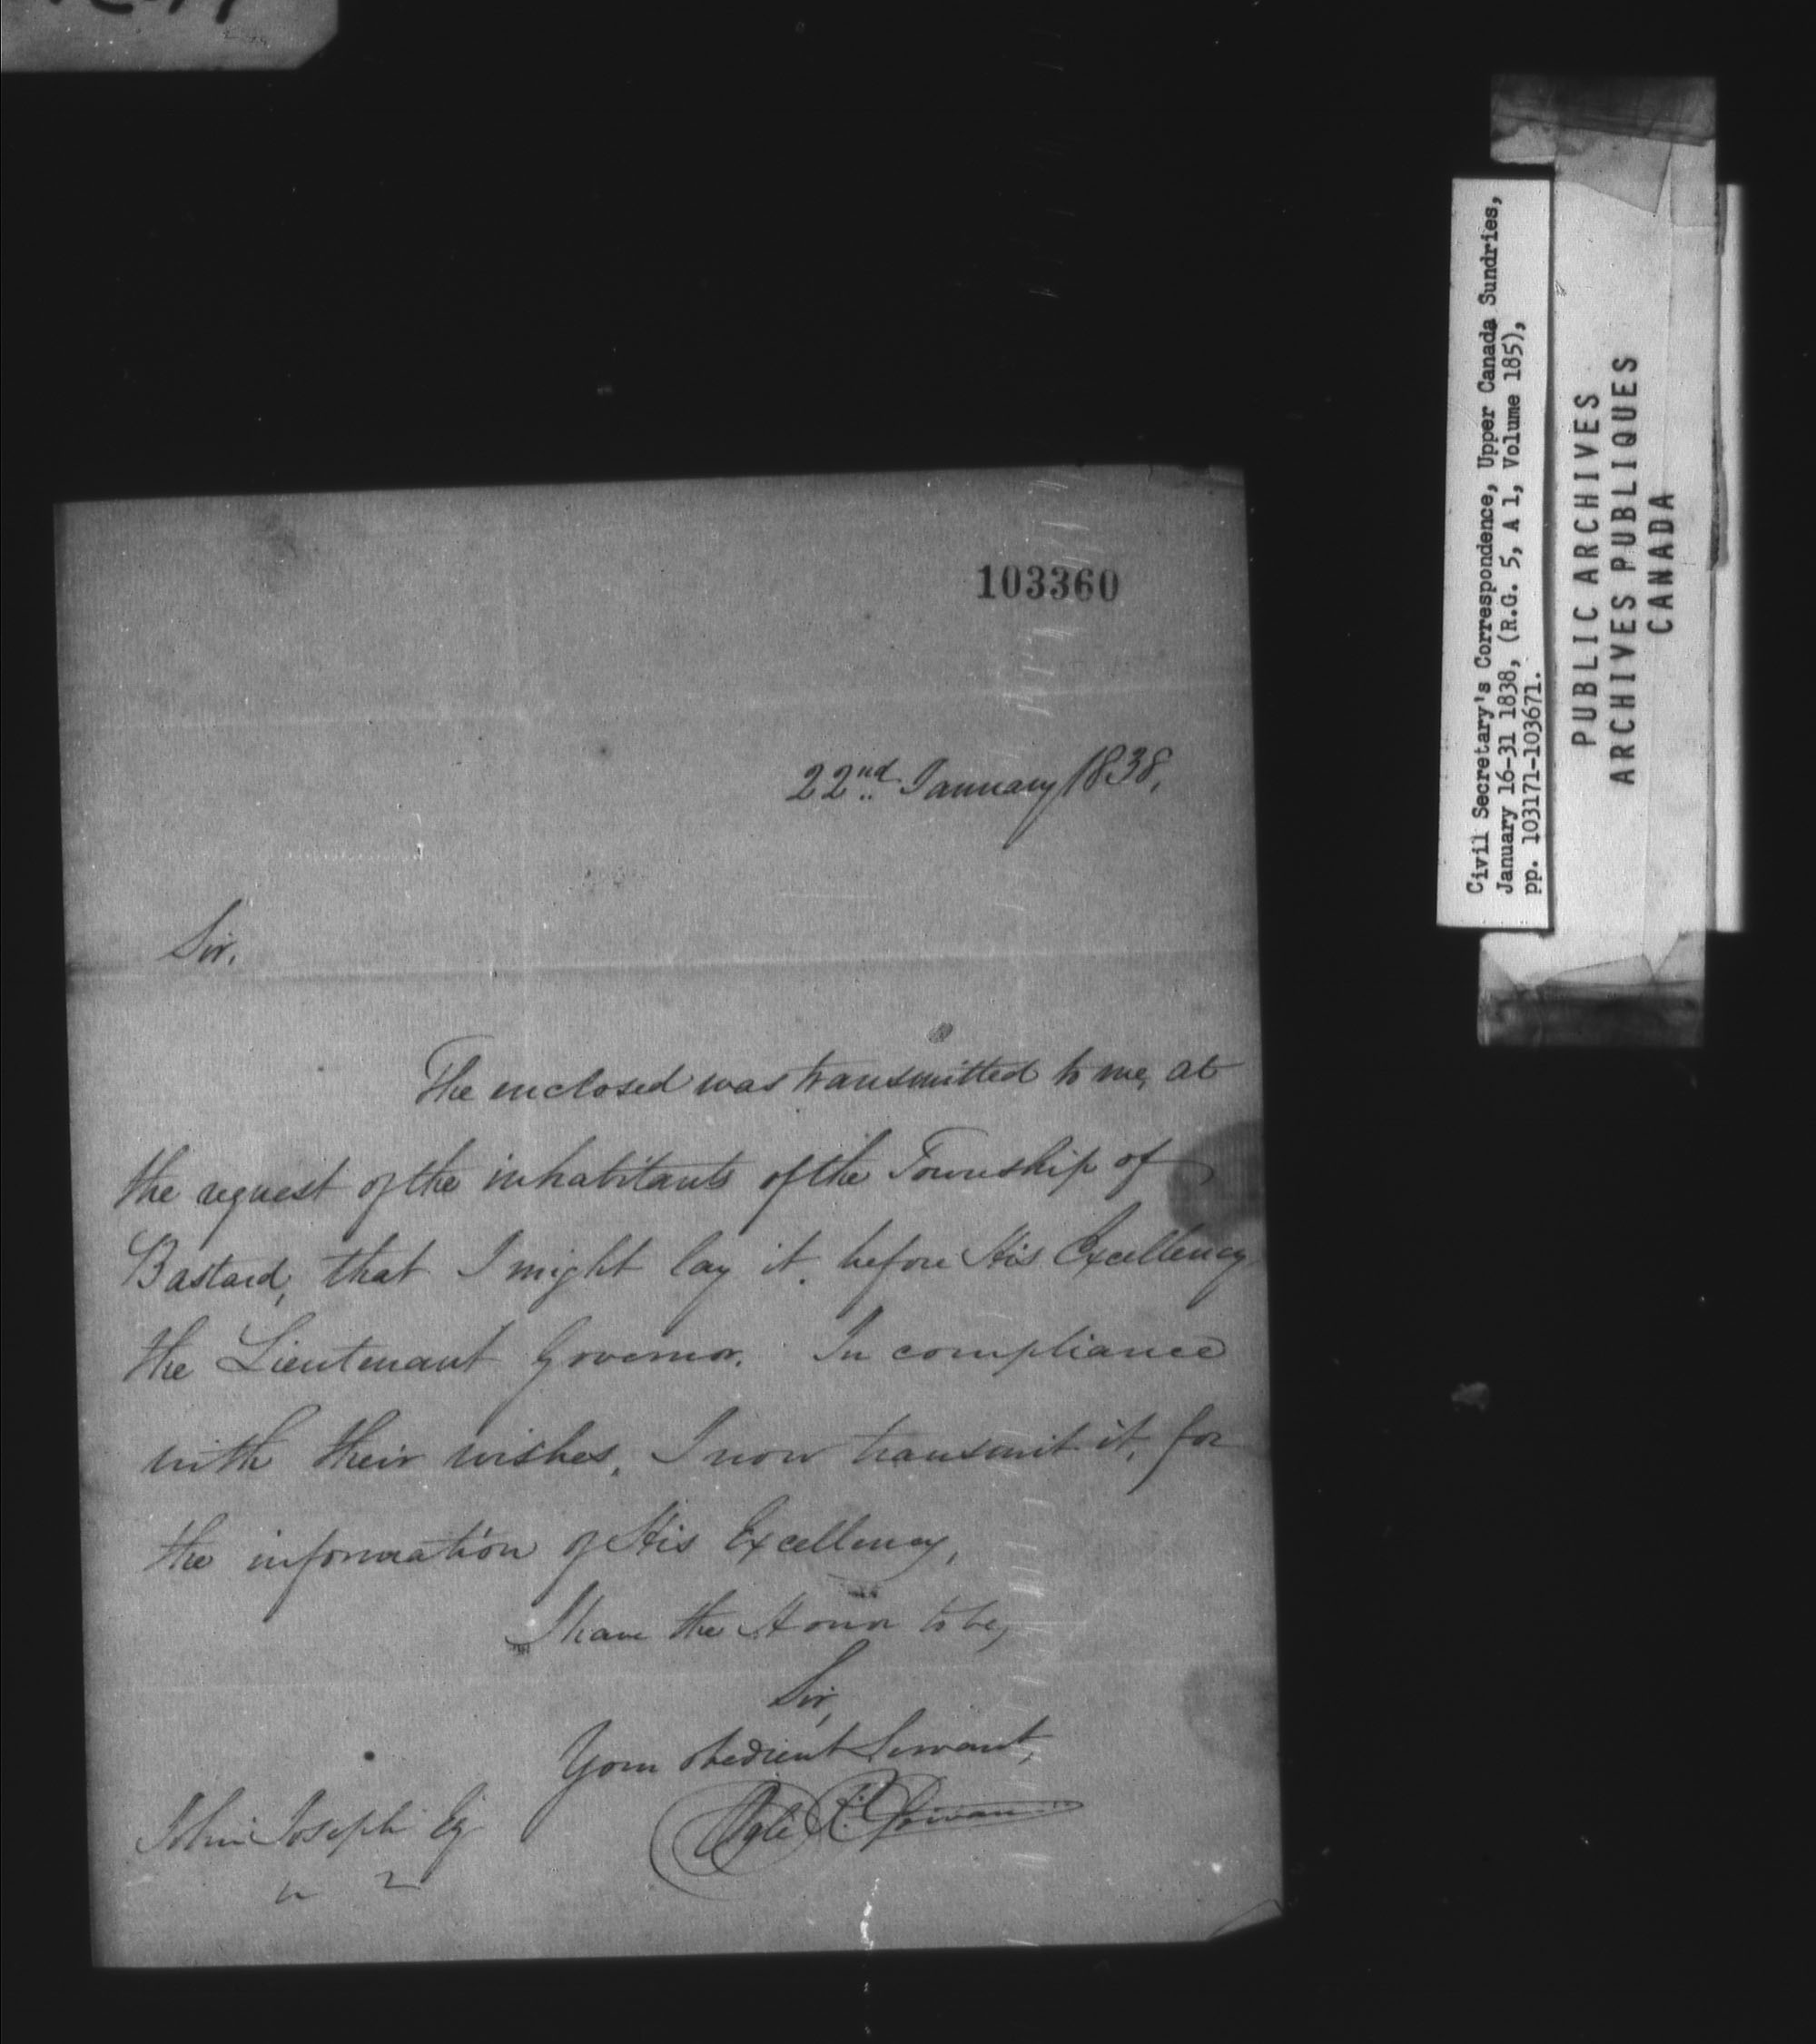 103360
22nd January 1838.
Sir,
The enclosed was transmitted to me, at
the request of the inhabitants of the Township of
Bastard, that I might lay it before His Excellency
the Lieutenant Governor. In compliance
with their wishes, I now transmit it, for
the information of His Excellency,
I have the Honor to be,
Sir,
Your obedient Servant,
Ogle R. Gowan
John Joseph Esq
Civil Secretary's Correspondence, Upper Canada Sundries,
January 16-31 1838, (R.G. 5, A 1, Volume 185),
pp. 103171-103671.
PUBLIC ARCHIVES
ARCHIVES PUBLIQUES
CANADA